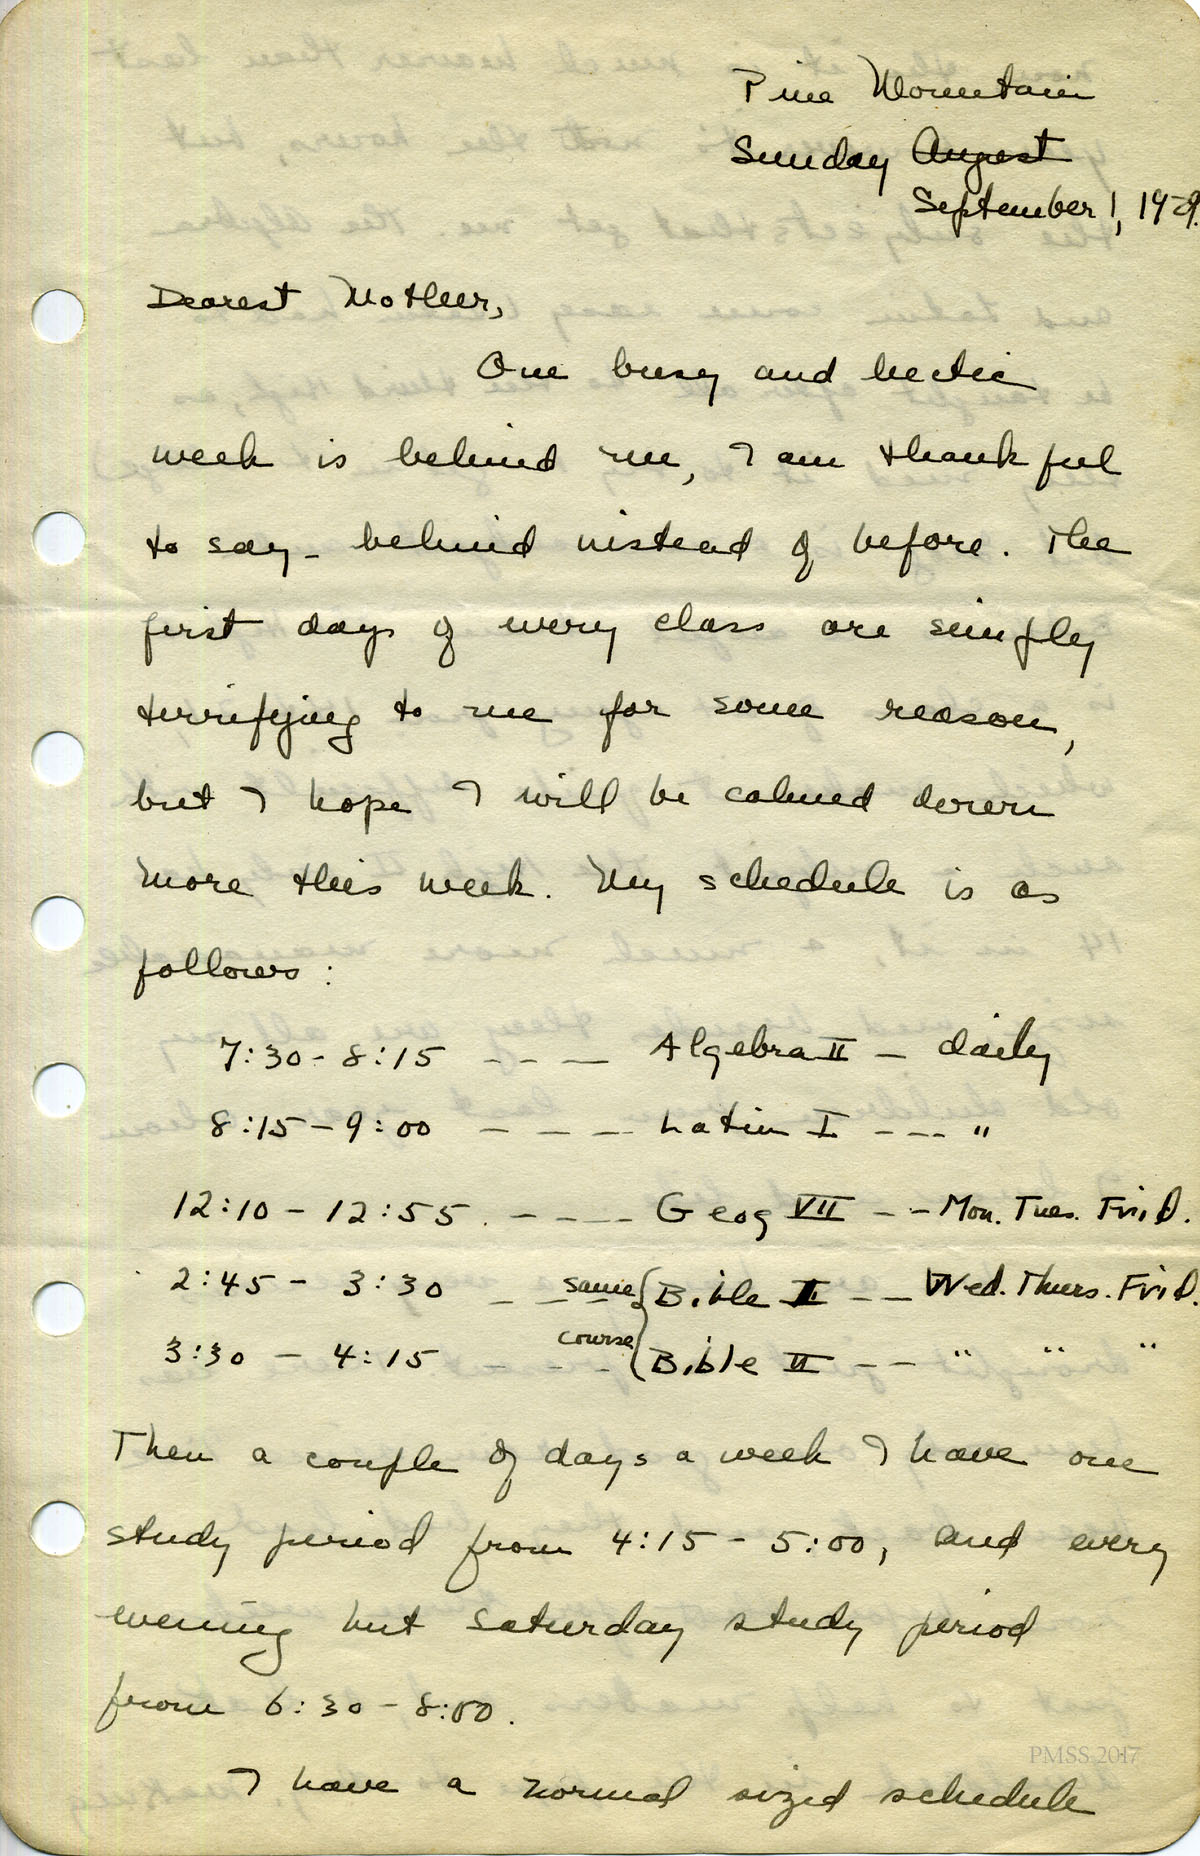 Pine Mountain
Sunday August
September 1, 1929.
Dearest Mother,
One busy and hectic
week is behind me, I am thankful
to say - behind instead of before. The
first days of every class are simply
terrifying to me for some reason,
but I hope I will be calmed down
more this week. My schedule is as
follows:
7:30 - 8:15 - - - Algebra II - daily
8:15 - 9:00 - - - Latin I - - - "
12:10 - 12:55. - - - Geog VII - - Mon. Tues. Frid.
2:45 - 3:30 - - same { Bible II - - Wed. Thurs. Frid.
3:30 - 4:15 - - - course { Bible II - - " " "
Then a couple of days a week I have one
study period from 4:15 - 5:00, and every
evening but Saturday study period
from 6:30 - 8:00.
I have a normal sized schedule
PMSS 2017